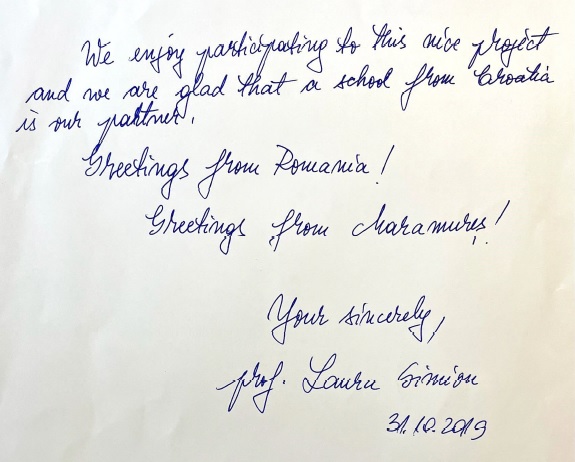 We enjoy participating to this nice project
and we are glad that a school from Croatia
is our partner.
Greetings from Romania!
Greetings from Maramureș!
Your sincerely,
prof. Laura Simion
31.10.2019